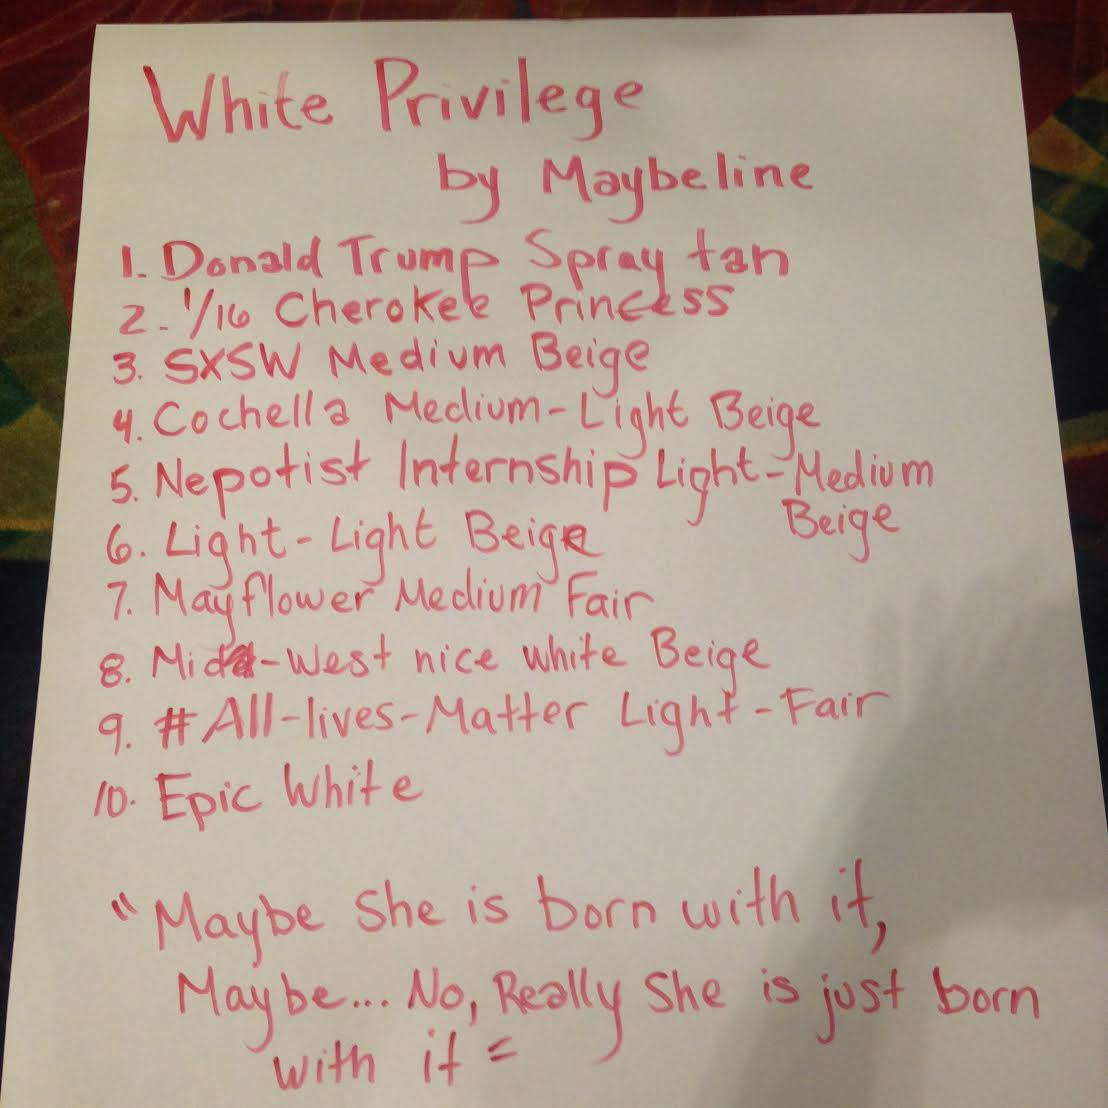 White Privilege
by Maybeline
1. Donald Trump Spray tan
2. 1/16 Cherokee Princess
3. SXSW Medium Beige
4. Cochella Medium-Light Beige
5. Nepotist Internship Light-Medium
Beige
6. Light-Light Beige
7. Mayflower Medium Fair
8. Mid-west nice white Beige
9. #All-lives-Matter Light-Fair
10. Epic White
"Maybe She is born with it,
Maybe... No, Really She is just born
with it "